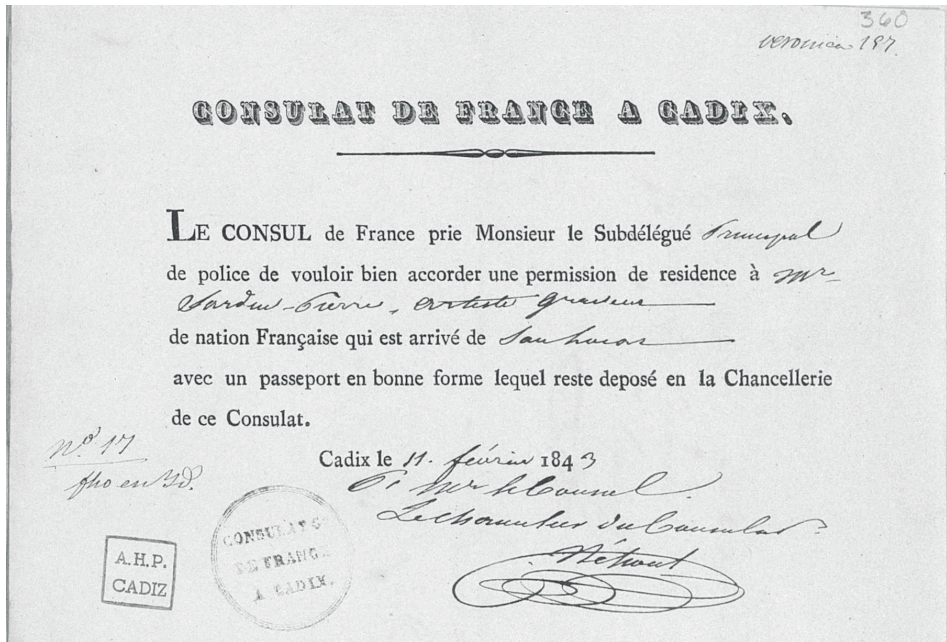 360
veronica 187.
CONSULAT DE FRANCE A CADIX.
LE CONSUL de France prie Monsieur le Subdélégué Principal
de police de vouloir bien accorder une permission de residence à Mr
Pierre, artiste graveur
de nation Française qui est arrivé de San Lucar
avec un passeport en bonne forme lequel reste deposé en la Chancellerie
de ce Consulat.
Nº 17
fho en 3d.
Cadix le 11. février 1843
Pr Mr le Consul
Le chancelier du Consulat
CONSULAT GL
DE FRANCE
A CADIX.
A.H.P.
CADIZ